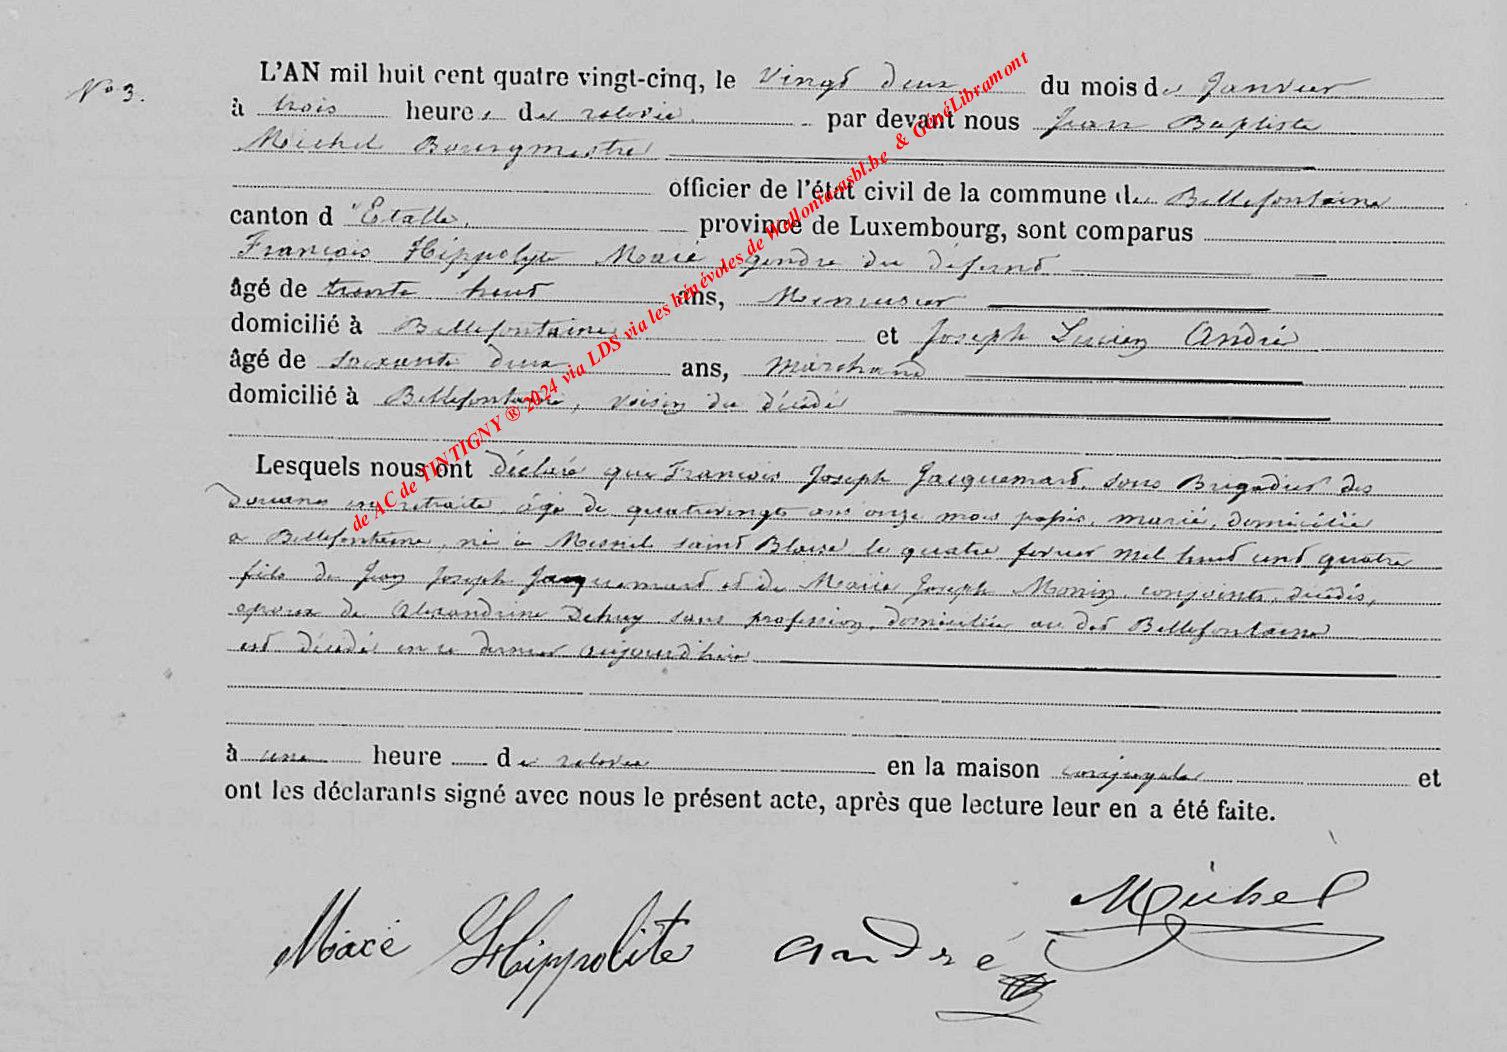 No 3.
L'AN mil huit cent quatre vingt-cinq, le vingt deux du mois de Janvier
à trois heures de relevée par devant nous Jean Baptiste
Michel Bourgmestre
officier de l'état civil de la commune de Bellefontaine
canton d'Etalle, province de Luxembourg, sont comparus
François Hippolyte Macé, gendre du défunt
âgé de trente huit ans, Menuisier
domicilié à Bellefontaine et Joseph Lucien André
âgé de soixante deux ans, marchand
domicilié à Bellefontaine, voisin du décédé
Lesquels nous ont déclaré que François Joseph Jacquemart, sous Brigadier des
douanes en retraite, âgé de quatrevingt ans onze mois passés, marié, domicilié
à Bellefontaine, né à Mesnil saint Blaise le quatre fevrier mil huit cent quatre
fils de Jean Joseph Jacquemart et de Marie Joseph Monin, conjoints, décédés,
époux de Alexandrine Dehuy sans profession, domiciliée au dit Bellefontaine
est décédé en ce dernier aujourd'hui
à une heure de relevée en la maison conjugale et
ont les déclarants signé avec nous le présent acte, après que lecture leur en a été faite.
Michel
Macé Hippolite André
de AC de TINTIGNY ® 2024 via LDS via les bénévoles de Wallonia asbl.be & GénéLibramont